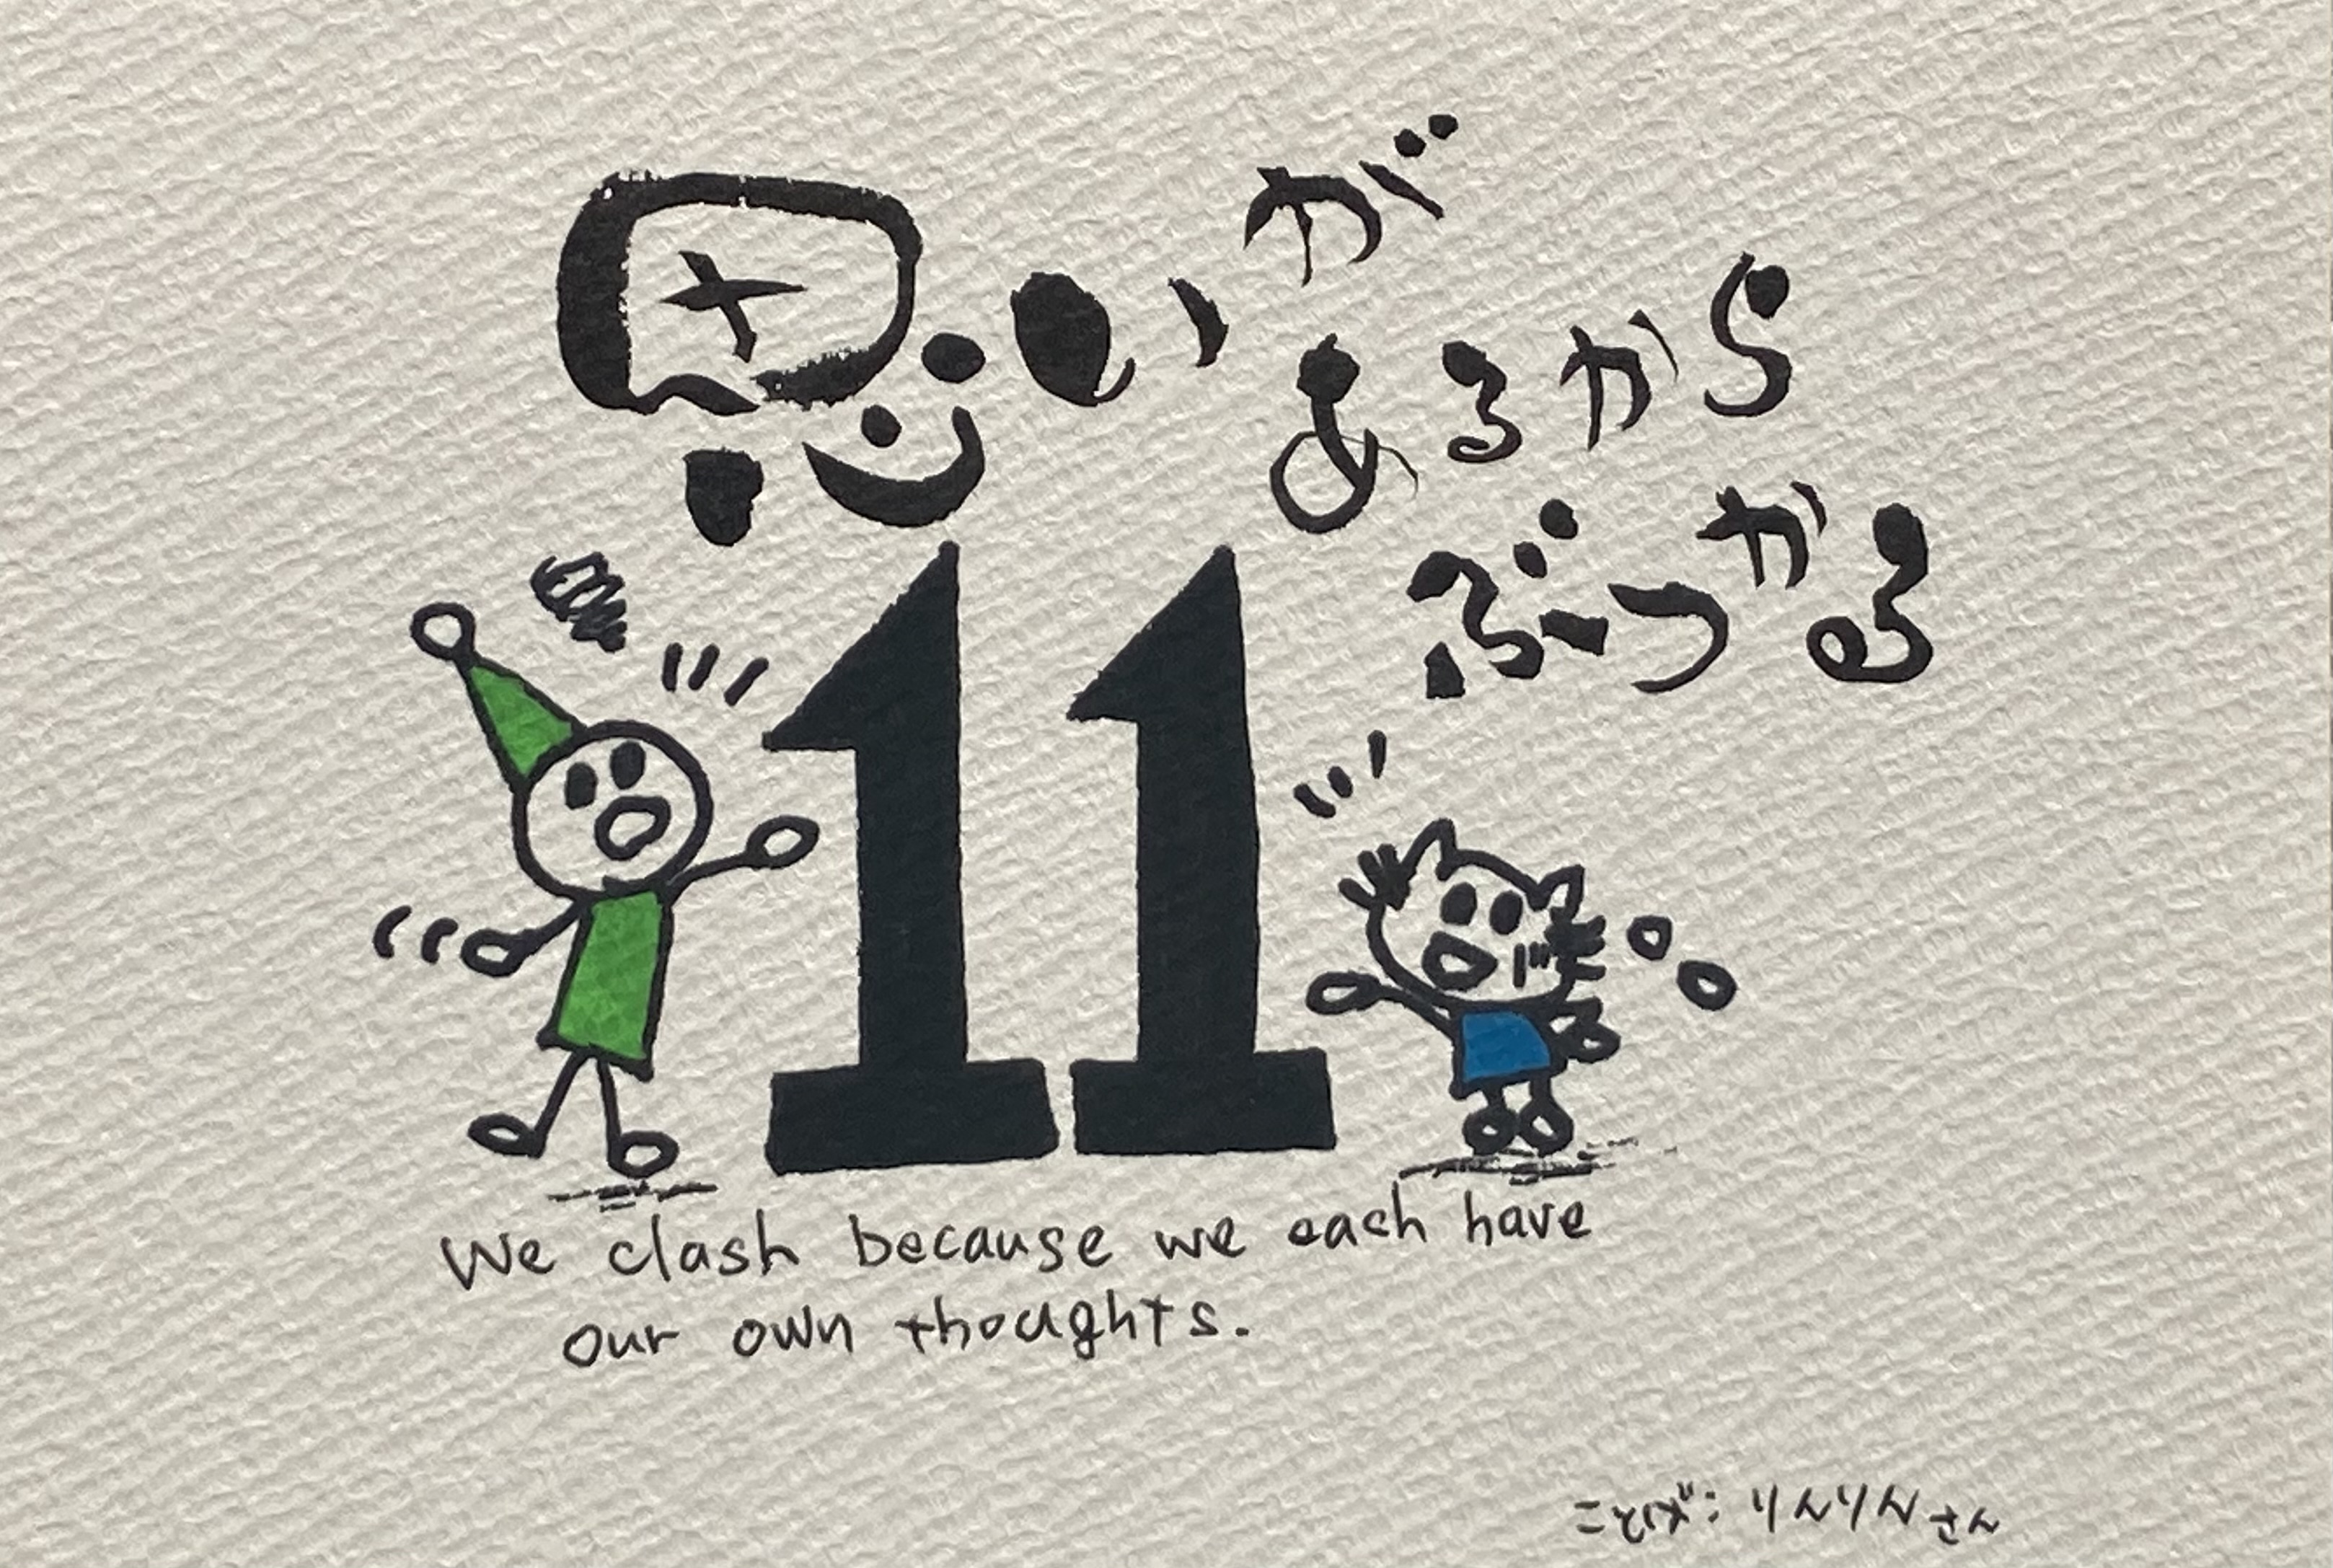 思いが
あるから
ぶつかる
11
We clash because we each have
our own thoughts.
ことば：りんりんさん